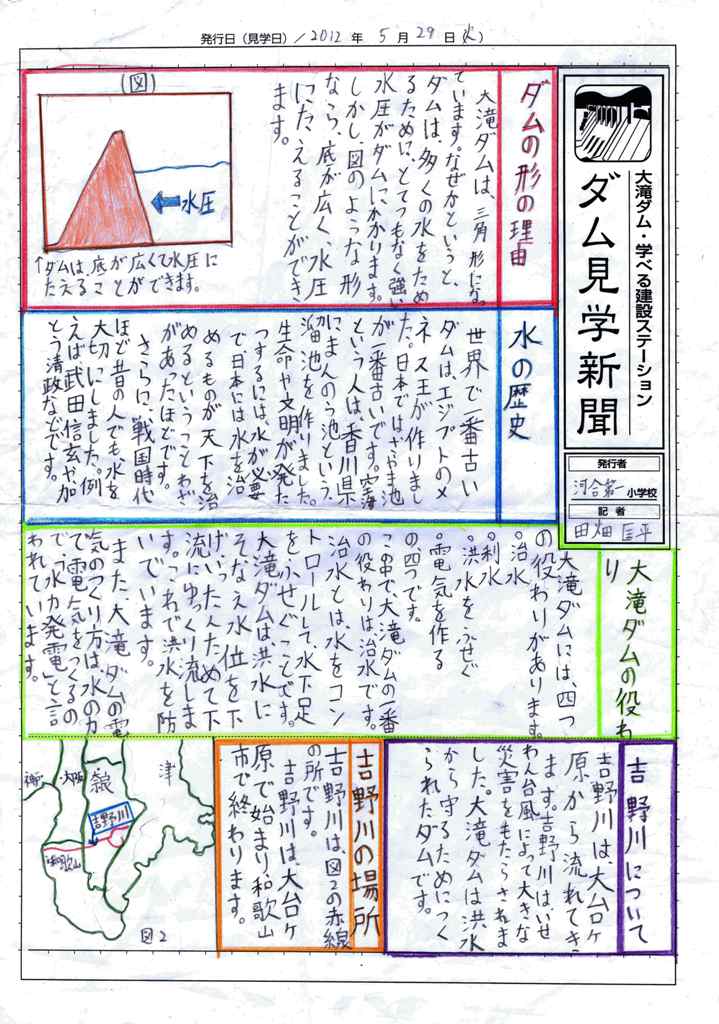 発行日（見学日）／2012 年 5 月 29 日（火）
大滝ダム・学べる建設ステーション
ダム見学新聞
発行者
河合第一小学校
記者
田畑 匡平
ダムの形の理由
大滝ダムは、三角形になっ
ています。なぜかというと、
ダムは、多くの水をため
るために、とてつもなく強い
水圧がダムにかかります。
しかし、図のような形
なら、底が広く、水圧
にたえることができ
ます。
（図）
水圧
↑ダムは、底が広くて水圧に
たえることができます。
水の歴史
世界で一番古い
ダムは、エジプトのメ
ネス王が作りまし
た。日本ではさやま池
が一番古いです。空海
という人は、香川県
にまんのう池という、
溜池を作りました。
生命や文明が発た
つするには、水が必要
で日本には水を治
めるものが天下を治
めるということわざ
があったほどです。
さらに、戦国時代
ほど昔の人でも水を
大切にしました。例
えば、武田信玄や加
とう清政などです。
大滝ダムの役わ
り
大滝ダムには、四つ
の役わりがあります。
。治水
。利水
。洪水をふせぐ
。電気を作る
の四つです。
この中で、大滝ダムの一番
の役わりは治水です。
治水とは、水をコン
トロールして、水不足
をふせぐことです。
大滝ダムは洪水に
そなえ水位を下
げ、いったんためて下
流にゆっくり流しま
す。これで洪水を防
いでいます。
また、大滝ダムの電
気のつくり方は、水の力
で電気をつくるの
で「水力発電」と言
われています。
吉野川について
吉野川は、大台ヶ
原から流れてき
ます。吉野川はいせ
わん台風によって大きな
災害をもたらされま
した。大滝ダムは洪水
から守るためにつく
られたダムです。
吉野川の場所
吉野川は、図2の赤線
の所です。
吉野川は、大台ヶ
原で始まり、和歌山
市で終わります。
津
奈良
大阪
神戸
吉野川
和歌山
図2